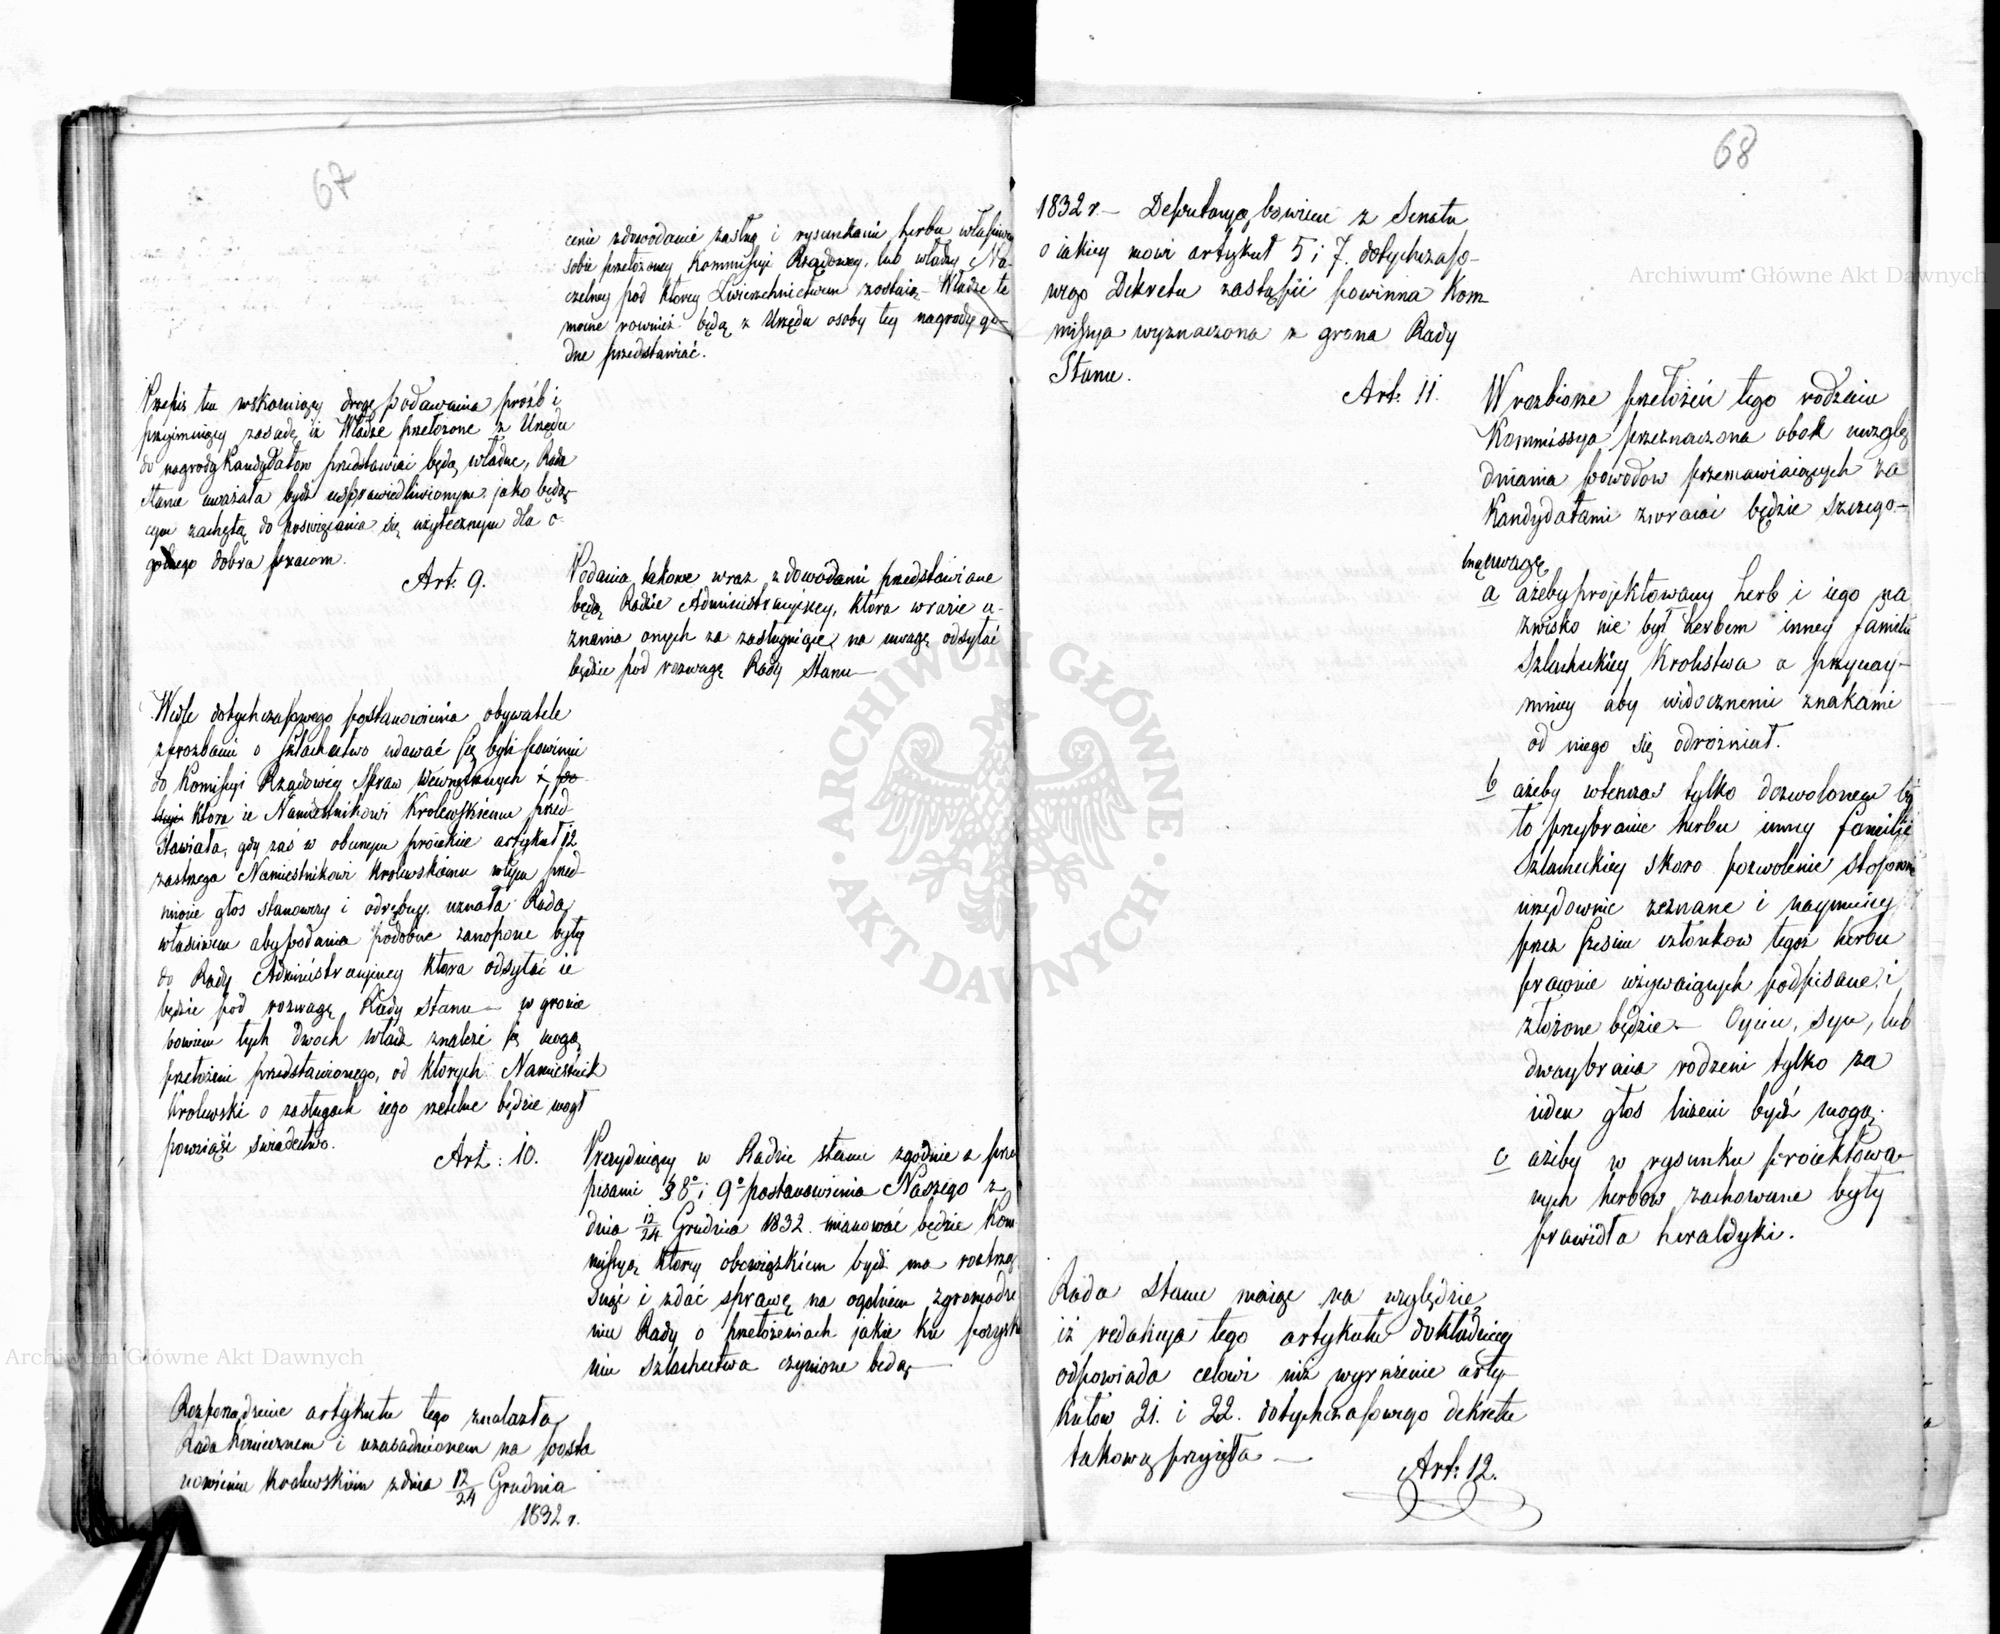 67
cenie z dowodami zasług i rysunkami herbu właściwey
sobie przełożoney Kommissyi Rządowey, lub władzy Na-
czelney pod którey Zwierzchnictwem zostaią – Władze te
mocne rownież będą z Urzędu osoby tey nagrody go-
dne przedstawiać.
Przepis ten wskazuiący drogę podawania próźb i
przyimuiący zasadę iż Władze przełożone z Urzędu
do nagrody Kandydatow przedstawiać będą władne, Rada
Stanu uważała bydź usprawiedliwionym jako będą-
cym zachętą do poswięcania się użytecznym dla o-
gólnego dobra pracom.
Art: 9.
Podania takowe wraz z dowodami przedstawiane
będą Radzie Administracyjney, która w razie u-
znania onych za zasługuiące na uwagę odsyłać
będzie pod rozwagę Rady Stanu –
Wedle dotychczasowego postanowienia obywatele
z prozbami o szlachectwo udawać się byli powinni
do Komissyi Rządowey Spraw Wewnętrznych i po-
licyi która ie Namiestnikowi Krolewskiemu przed-
stawiała, gdy zaś w obecnym proiekcie artykuł 12
zastrzega Namiestnikowi Krolewskiemu w tym przed-
miocie głos stanowczy i odrębny, uznała Rada
właściwem aby podania podobne zanoszone były
do Rady Administracyjney która odsyłać ie
będzie pod rozwagę Rady Stanu – w gronie
bowiem tych dwoch Władz znaleźć się mogą
przełożeni przedstawionego, od ktorych Namiestnik
Krolewski o zasługach iego rzetelne będzie mogł
powziąść świadectwo.
Art: 10.
Prezyduiący w Radzie Stanu zgodnie z prze
pisami 8° i 9° postanowienia Naszego z
dnia 12/24 Grudnia 1832. mianować będzie Kom-
missyą ktorey obowiązkiem bydź ma roztrzą-
snąć i zdać sprawę na ogólnem zgromadze
niu Rady o przełożeniach jakie ku pozyska
niu szlachectwa czynione będą –
Rozporządzenie artykułu tego znalazła
Rada koniecznem i uzasadnionem na posta
nowieniu Krolewskiem z dnia 12/24 Grudnia
1832 r.
68
1832 r. – Deputacyą bowiem z Senatu
o iakiey mowi artykuł 5 i 7. dotychczaso-
wego Dekretu zastąpić powinna Kom-
missya wyznaczona z grona Rady
Stanu.
Art: 11.
W rozbiorze przełożeń tego rodzaiu
Kommissya przeznaczona obok uwzglę
dniania powodow przemawiaiących za
Kandydatami zwracać będzie szczegó-
lną uwagę
a ażeby projektowany herb i iego na
zwisko nie był herbem inney familii
Szlacheckiey Krolestwa a przynay-
mniey aby widocznemi znakami
od niego się odrożniał.
b ażeby wtenczas tylko dozwolonem by
ło przybranie herbu inney familii
Szlacheckiey skoro pozwolenie stosowne
urzędownie zeznane i naymniey
przez sześciu członkow tegoż herbu
prawnie używaiących podpisane i
złożone będzie – Oyciec, syn, lub
dwaybracia rodzeni tylko za
ieden głos liczeni bydź mogą.
c ażeby w rysunku proiektowa-
nych herbow zachowane były
prawidła heraldyki.
Rada Stanu maiąc na względzie
iż redakcya tego artykułu dokładniey
odpowiada celowi niż wyrażenie arty-
kułow 21. i 22. dotychczasowego dekretu
takową przyięła –
Art: 12.
Archiwum Główne Akt Dawnych
Archiwum Główne Akt Dawnych
ARCHIWUM GŁÓWNE · AKT DAWNYCH ·